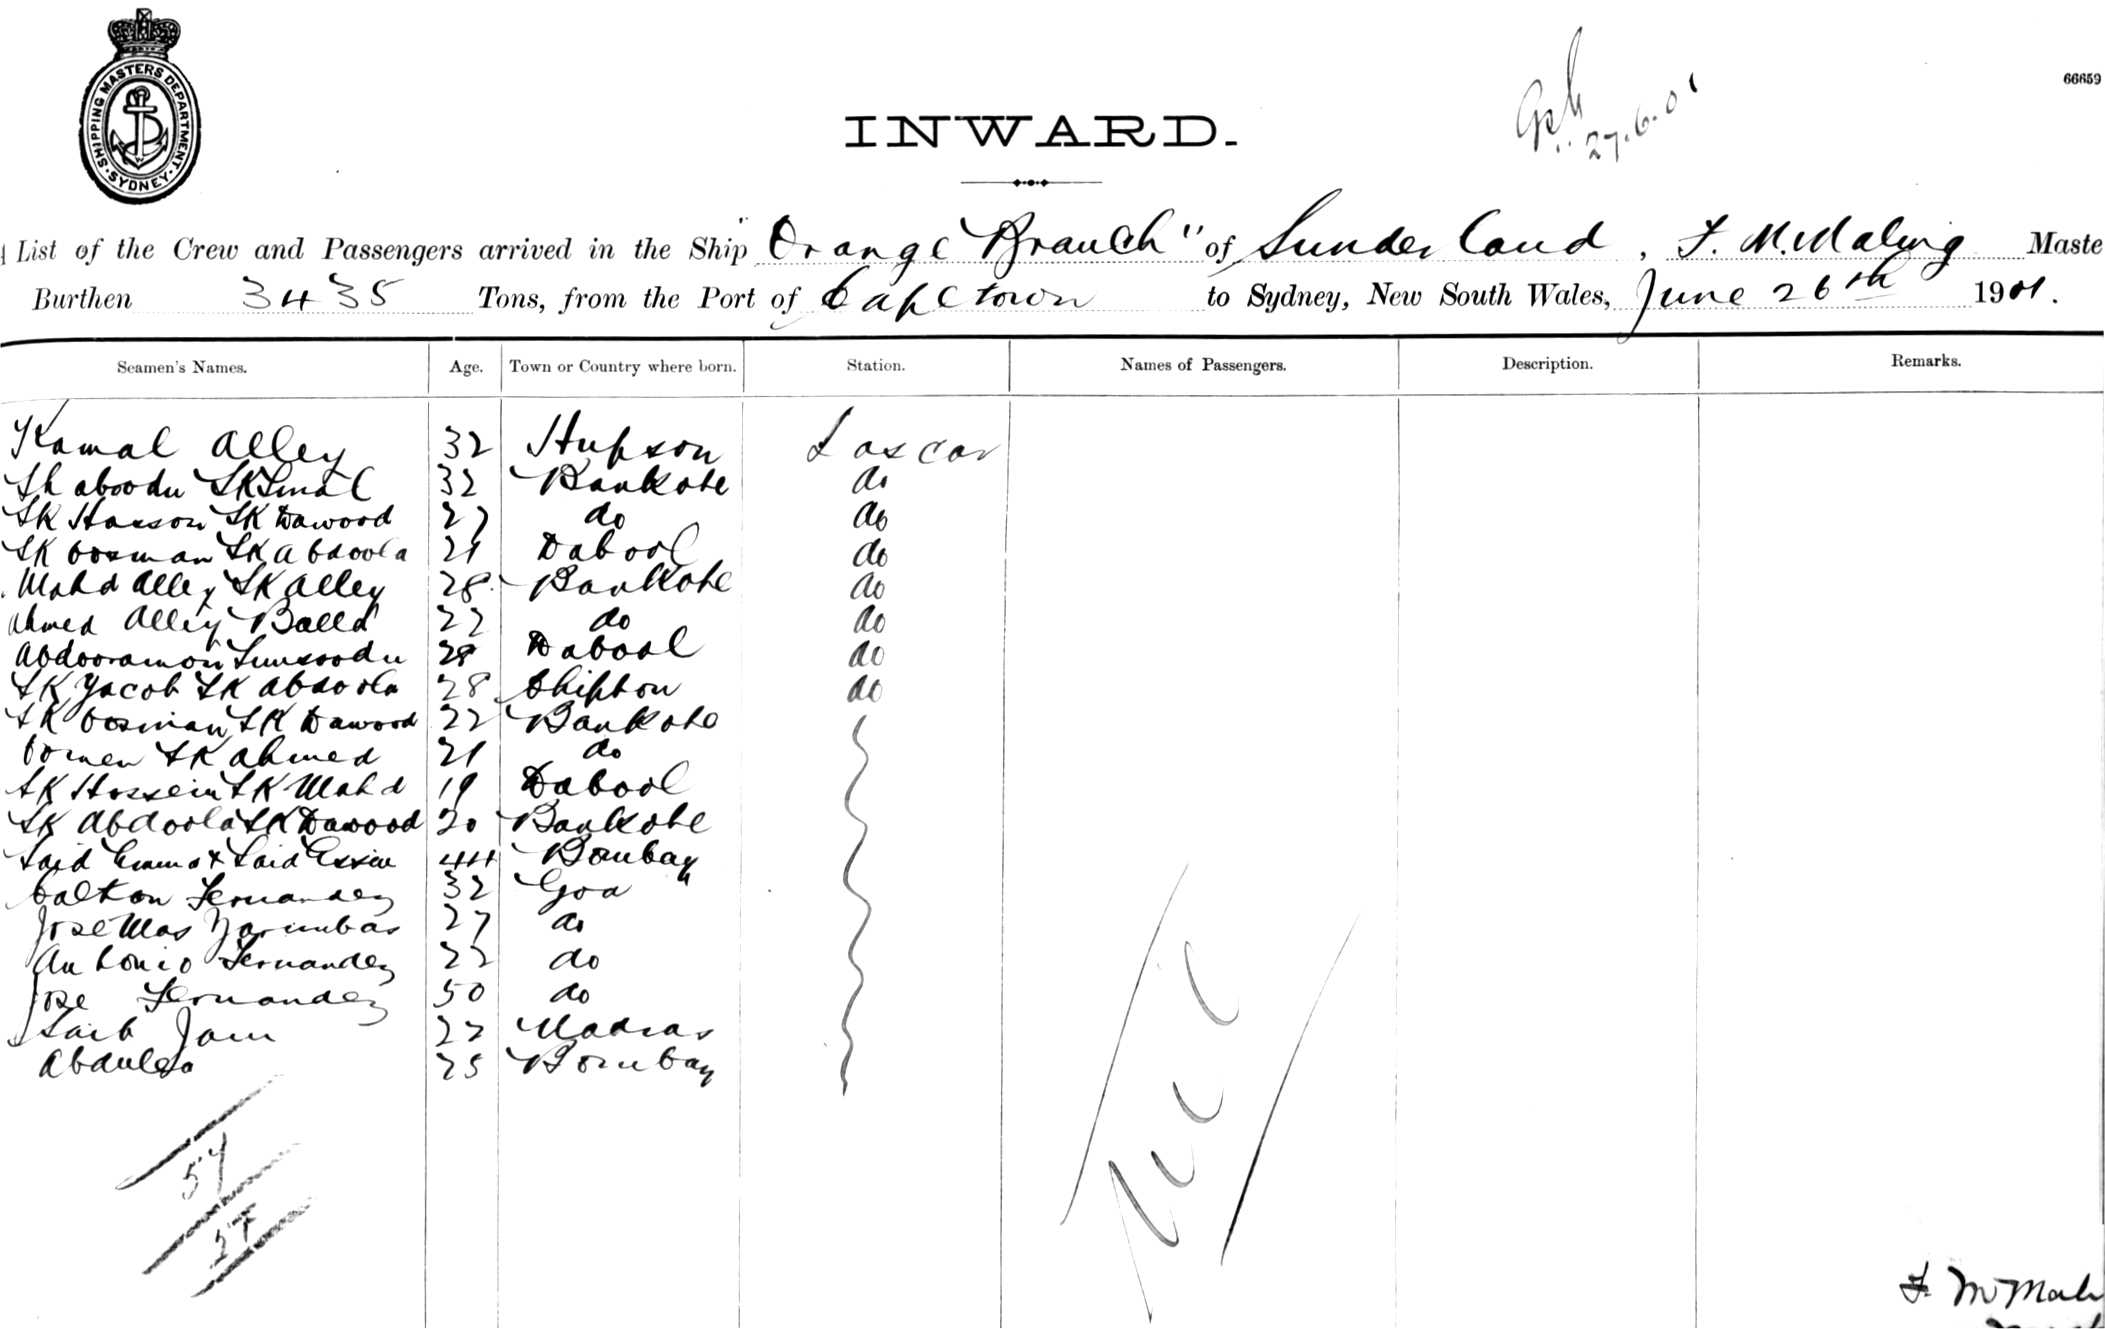 SHIPPING MASTERS DEPARTMENT. SYDNEY.
66659
INWARD.
27.6.01
List of the Crew and Passengers arrived in the Ship "Orange Branch" of Sunderland, F. M. Maling Maste
Burthen 3435 Tons, from the Port of Capetown to Sydney, New South Wales, June 26th 1901.
Seamen's Names. Age. Town or Country where born. Station. Names of Passengers. Description. Remarks.
Kamal Alley 32 Lascar
32 Bankote do
SK Hasson SK Dawood 27 do do
SK Oosman SK Abdoola 21 Dabool do
Mahd Alley SK Alley 28 Bankote do
Ahmed Alley 22 do do
28 Dabool do
SK Yacob SK Abdoola 28 do
SK Oosman SK Dawood 22 Bankote
Oomer SK Ahmed 21 do
SK Hossein SK Mahd 19 Dabool
SK Abdoola SK Dawood 20 Bankote
Said Said 44 Bombay
Fernandez 32 Goa
Jose Mas 27 do
Antonio Fernandez 22 do
Jose Fernandez 50 do
Jam 22 Madras
Abdulla 25 Bombay
Nil
57
57